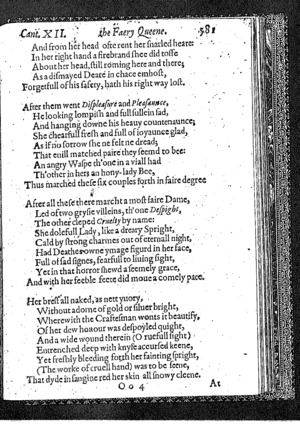 Cant. XII. the Faery Queene. 581
And from her head ofte rent her snarled heare:
In her right hand a firebrand shee did tosse
About her head, still roming here and there;
As a dismayed Deare in chace embost,
Forgetfull of his safety, hath his right way lost.
After them went Displeasure and Pleasance,
He looking lompish and full sullein sad,
And hanging downe his heauy countenaunce;
She chearfull fresh and full of ioyaunce glad,
As if no sorrow she ne felt ne dread;
That euill matched paire they seemd to bee:
An angry Waspe th'one in a viall had
Th'other in hers an hony-lady Bee,
Thus marched these six couples forth in faire degree
After all these there marcht a most faire Dame,
Led of two grysie villeins, th'one Despight,
The other cleped Cruelty by name:
She dolefull Lady, like a dreary Spright,
Cald by strong charmes out of eternall night,
Had Deathes owne ymage figurd in her face,
Full of sad signes, fearfull to liuing sight,
Yet in that horror shewd a seemely grace,
And with her feeble feete did moue a comely pace.
Her brest all naked, as nett yuory,
Without adorne of gold or siluer bright,
Wherewith the Craftesman wonts it beautify,
Of her dew honour was despoyled quight,
And a wide wound therein (O ruefull sight)
Entrenched deep with knyfe accursed keene,
Yet freshly bleeding forth her fainting spright,
(The worke of cruell hand) was to be seene,
That dyde in sanguine red her skin all snowy cleene.
Oo 4 At